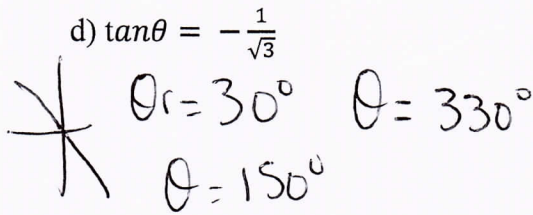 d) tanθ = - 1/√3
θr = 30° θ = 330°
θ = 150°